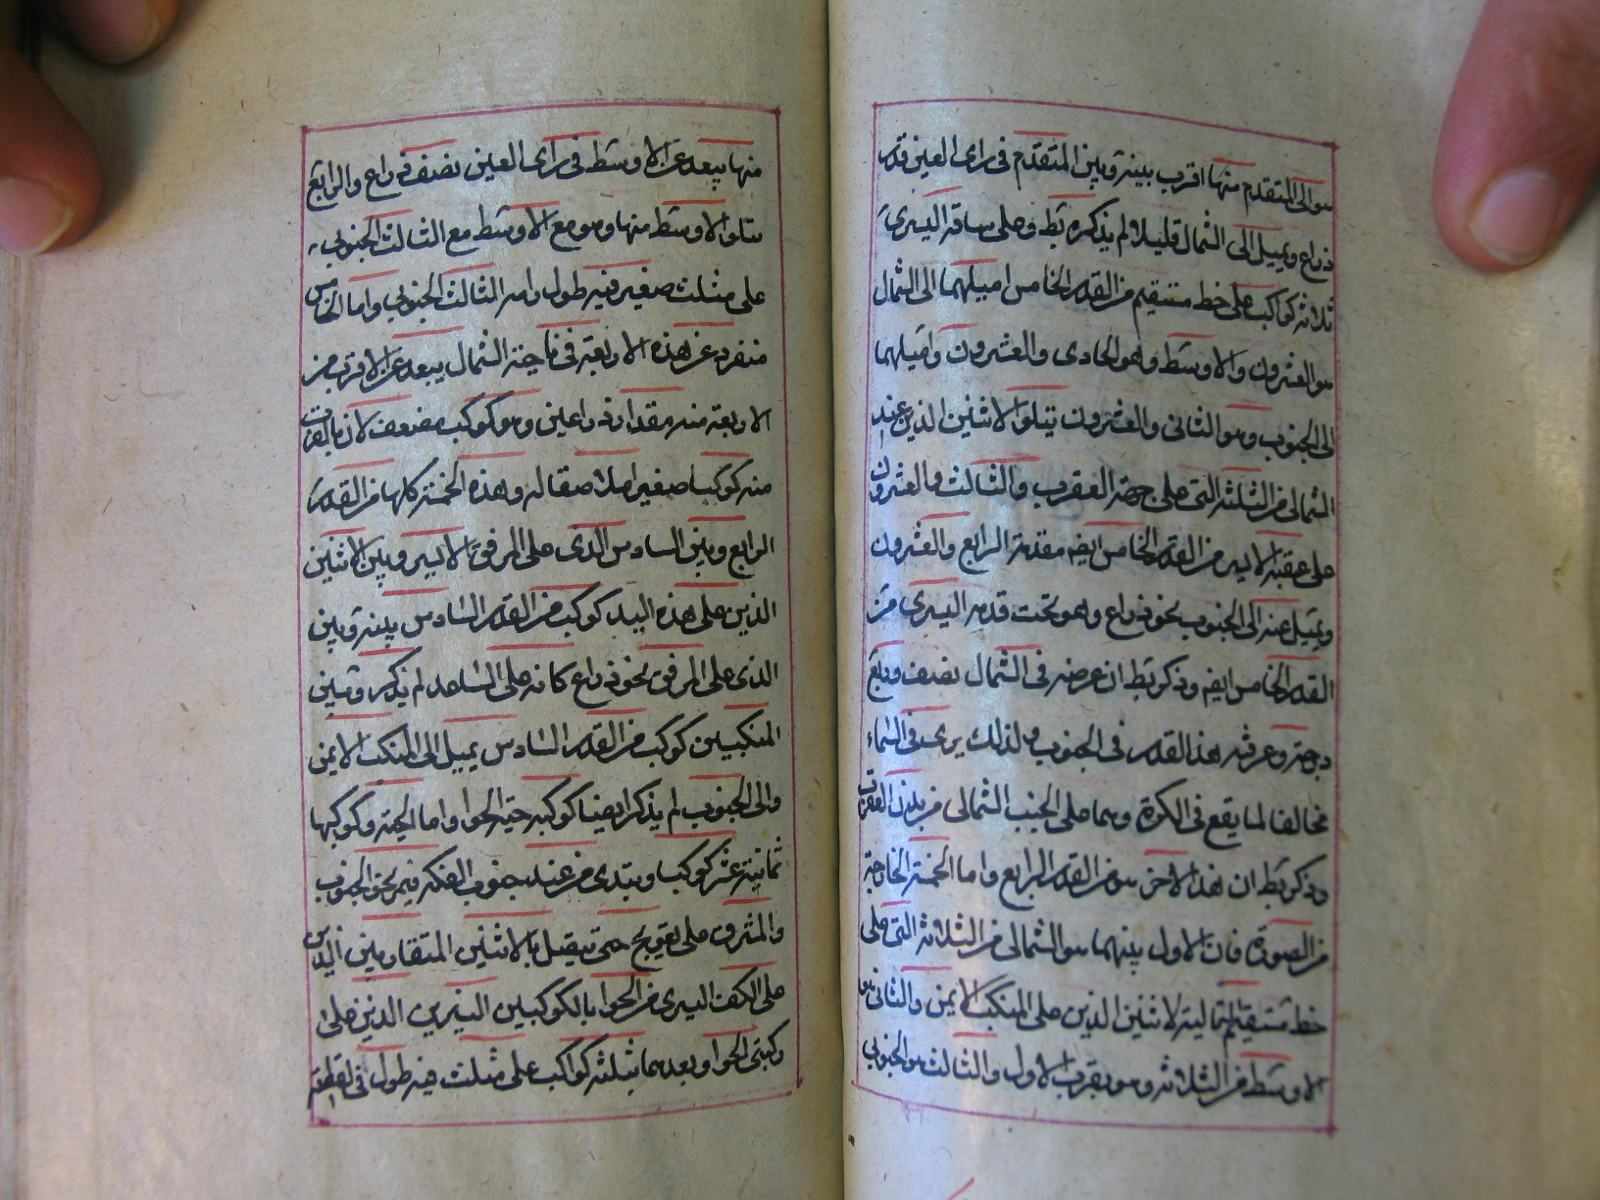 هو الى المتقدم منها اقرب بينه وبين المتقدم فى راى العين قدر
ذراع ويميل الى الشمال قليلا لم يذكره بط وعلى ساقه اليسرى
ثلاثة كواكب على خط مستقيم من القدر الخامس اميلهما الى الشمال
هو العشرون والاوسط وهو الحادى والعشرون واميلهما
الى الجنوب وهو الثانى والعشرون يتلوا الاثنين الذين عند
الشمالى من الثلثة التى على جبهة العقرب والثالث والعشرون
على عقبه الايسر من القدر الخامس ايضه مقدمة الرابع والعشرون
ويميل عنه الى الجنوب بنحو ذراع وهو تحت قدمه اليسرى من
القدر الخامس ايضه وذكر بط ان عرضه فى الشمال نصف وربع
درجة وعرضه هذا القدر فى الجنوب ولذلك يرى فى السماء
مخالفا لما يقع فى الكرة وهما على الجنب الشمالى من بدن العقرب
وذكر بط ان هذا الاخر هو من القدر الرابع واما الخمسة الخارجة
من الصورة فان الاول بينهما هو الشمالى من الثلاثة التى على
خط مستقيم تالية لاثنين الذين على المنكب الايمن والثانى
الاوسط من الثلاثة وهو بقرب الاول والثالث هو الجنوبى
منها يبعد عن الاوسط فى راى العين نصف ذراع والرابع
يتلوا الاوسط منها وهو مع الاوسط مع الثالث الجنوبى
على مثلث صغير فيه طول وراس المثالث الجنوبى واما الخامس
منفرد عن هذه الاربعة فى ناحية الشمال يبعد عن الاقرب من
الاربعة منه مقدار ذراعين وهو كوكب مضعف لان بالقرب
منه كوكبا صغيرا ملاصقا له وهذه الخمسة كلها من القدر
الرابع وبين السادس الذى على المرفق الايسر وبين الاثنين
الذين على هذه اليد كوكب من القدر السادس بينه وبين
الذى على المرفق نحو ذراع كانه على الساعد لم يذكر وبين
المنكبين كوكب من القدر السادس يميل الى المنكب الايمن
والى الجنوب لم يذكر ايضا كوكبه حية الحوا واما الحية وكوكبها
ثمانية عشر كوكبا ويبتدى من عند جنوب الفكه فيمر نحو الجنوب
والمشرق على تعويج حتى تتصل بالاثنين المتقاربين الذين
على الكف اليسرى من الحوا بالكوكبين النيرين الذين على
ركبتى الحوا وبعدهما بثلثة كواكب على مثلث فيه طول فى